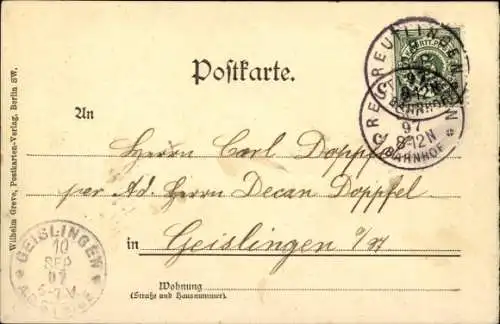 Postkarte.
REUTLINGEN
97
8-12N
BAHNHOF
97
8-12N
BAHNHOF
An
Herrn Carl Doppfel
per Ad. Herrn Decan Doppfel
in Geislingen a/St
Wohnung
(Straße und Hausnummer).
GEISLINGEN
10
SEP
97
Wilhelm Greve, Postkarten-Verlag, Berlin SW.